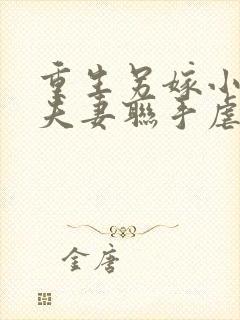 重生另嫁小
夫妻聯手虐
金唐